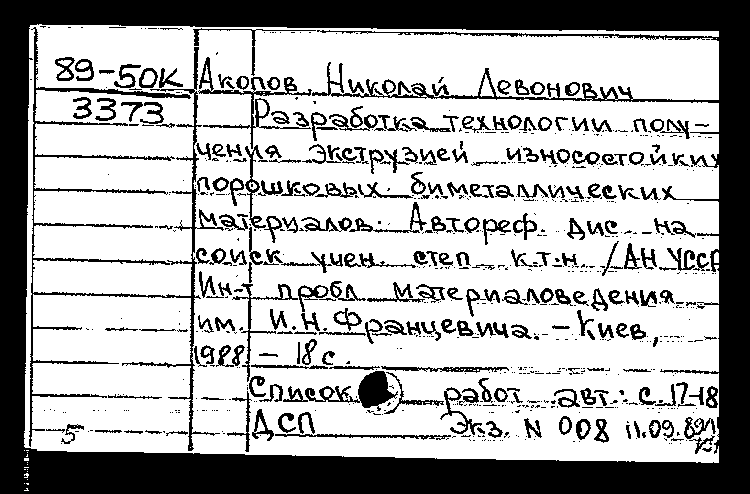 89-50К Акопов, Николай Левонович
3373 Разработка технологии полу-
чения экструзией износостойких
порошковых биметаллических
материалов: Автореф. дис на
соиск учен. степ к.т.н. /АН УССР
Ин-т пробл материаловедения
им. И.Н.Францевича. – Киев,
1988 – 18 с.
Список работ авт.: с. 17-18
ДСП Экз. N 008 11.09.89
5